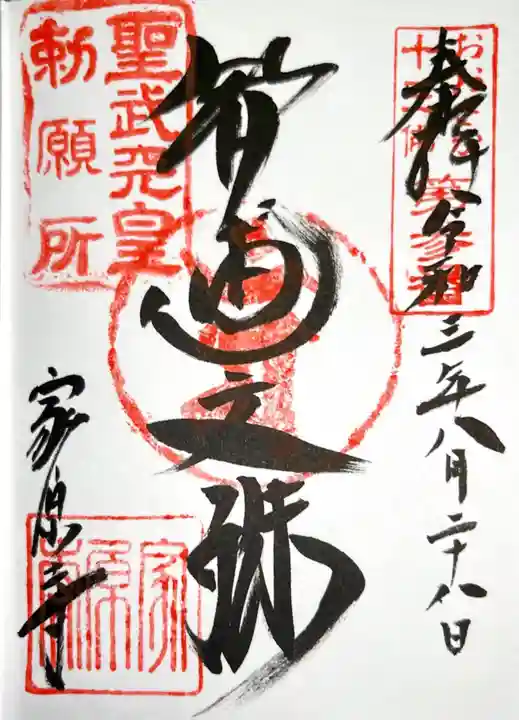 奉拝 令和三年八月二十八日
智恵文殊
聖武天皇
勅願所
家原寺
家原寺